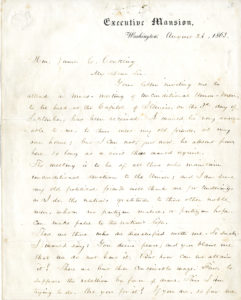 Executive Mansion,
Washington, August 26, 1863.
Hon. James C. Conkling
My Dear Sir.
Your letter inviting me to
attend a mass-meeting of unconditional Union-men,
to be held at the Capital of Illinois, on the 3rd day of
September, has been received. It would be very agree-
able to me, to thus meet my old friends, at my
own home; but I can not, just now, be absent from
here so long as a visit there would require.
The meeting is to be of all those who maintain
unconditional devotion to the Union; and I am sure
my old political friends will thank me for tendering,
as I do, the nation's gratitude to those other noble
men, whom no partizan malice, or partizan hope,
can make false to the nation's life.
There are those who are dissatisfied with me. To such
I would say: You desire peace; and you blame me
that we do not have it. But how can we attain
it? There are but three conceivable ways. First, to
suppress the rebellion by force of arms. This I am
trying to do. Are you for it? If you are, so far we